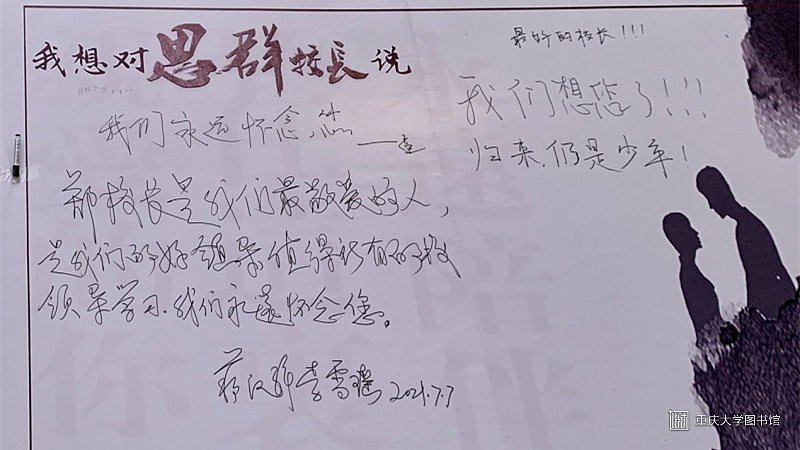 我想对思群校长说
最好的校长!!!
我们永远怀念您
我们想您了!!!
归来,仍是少年!
郑校长是我们最敬爱的人,
是我们的好领导值得所有的校
领导学习.我们永远怀念您。
李雪 2021.7.7
重庆大学图书馆